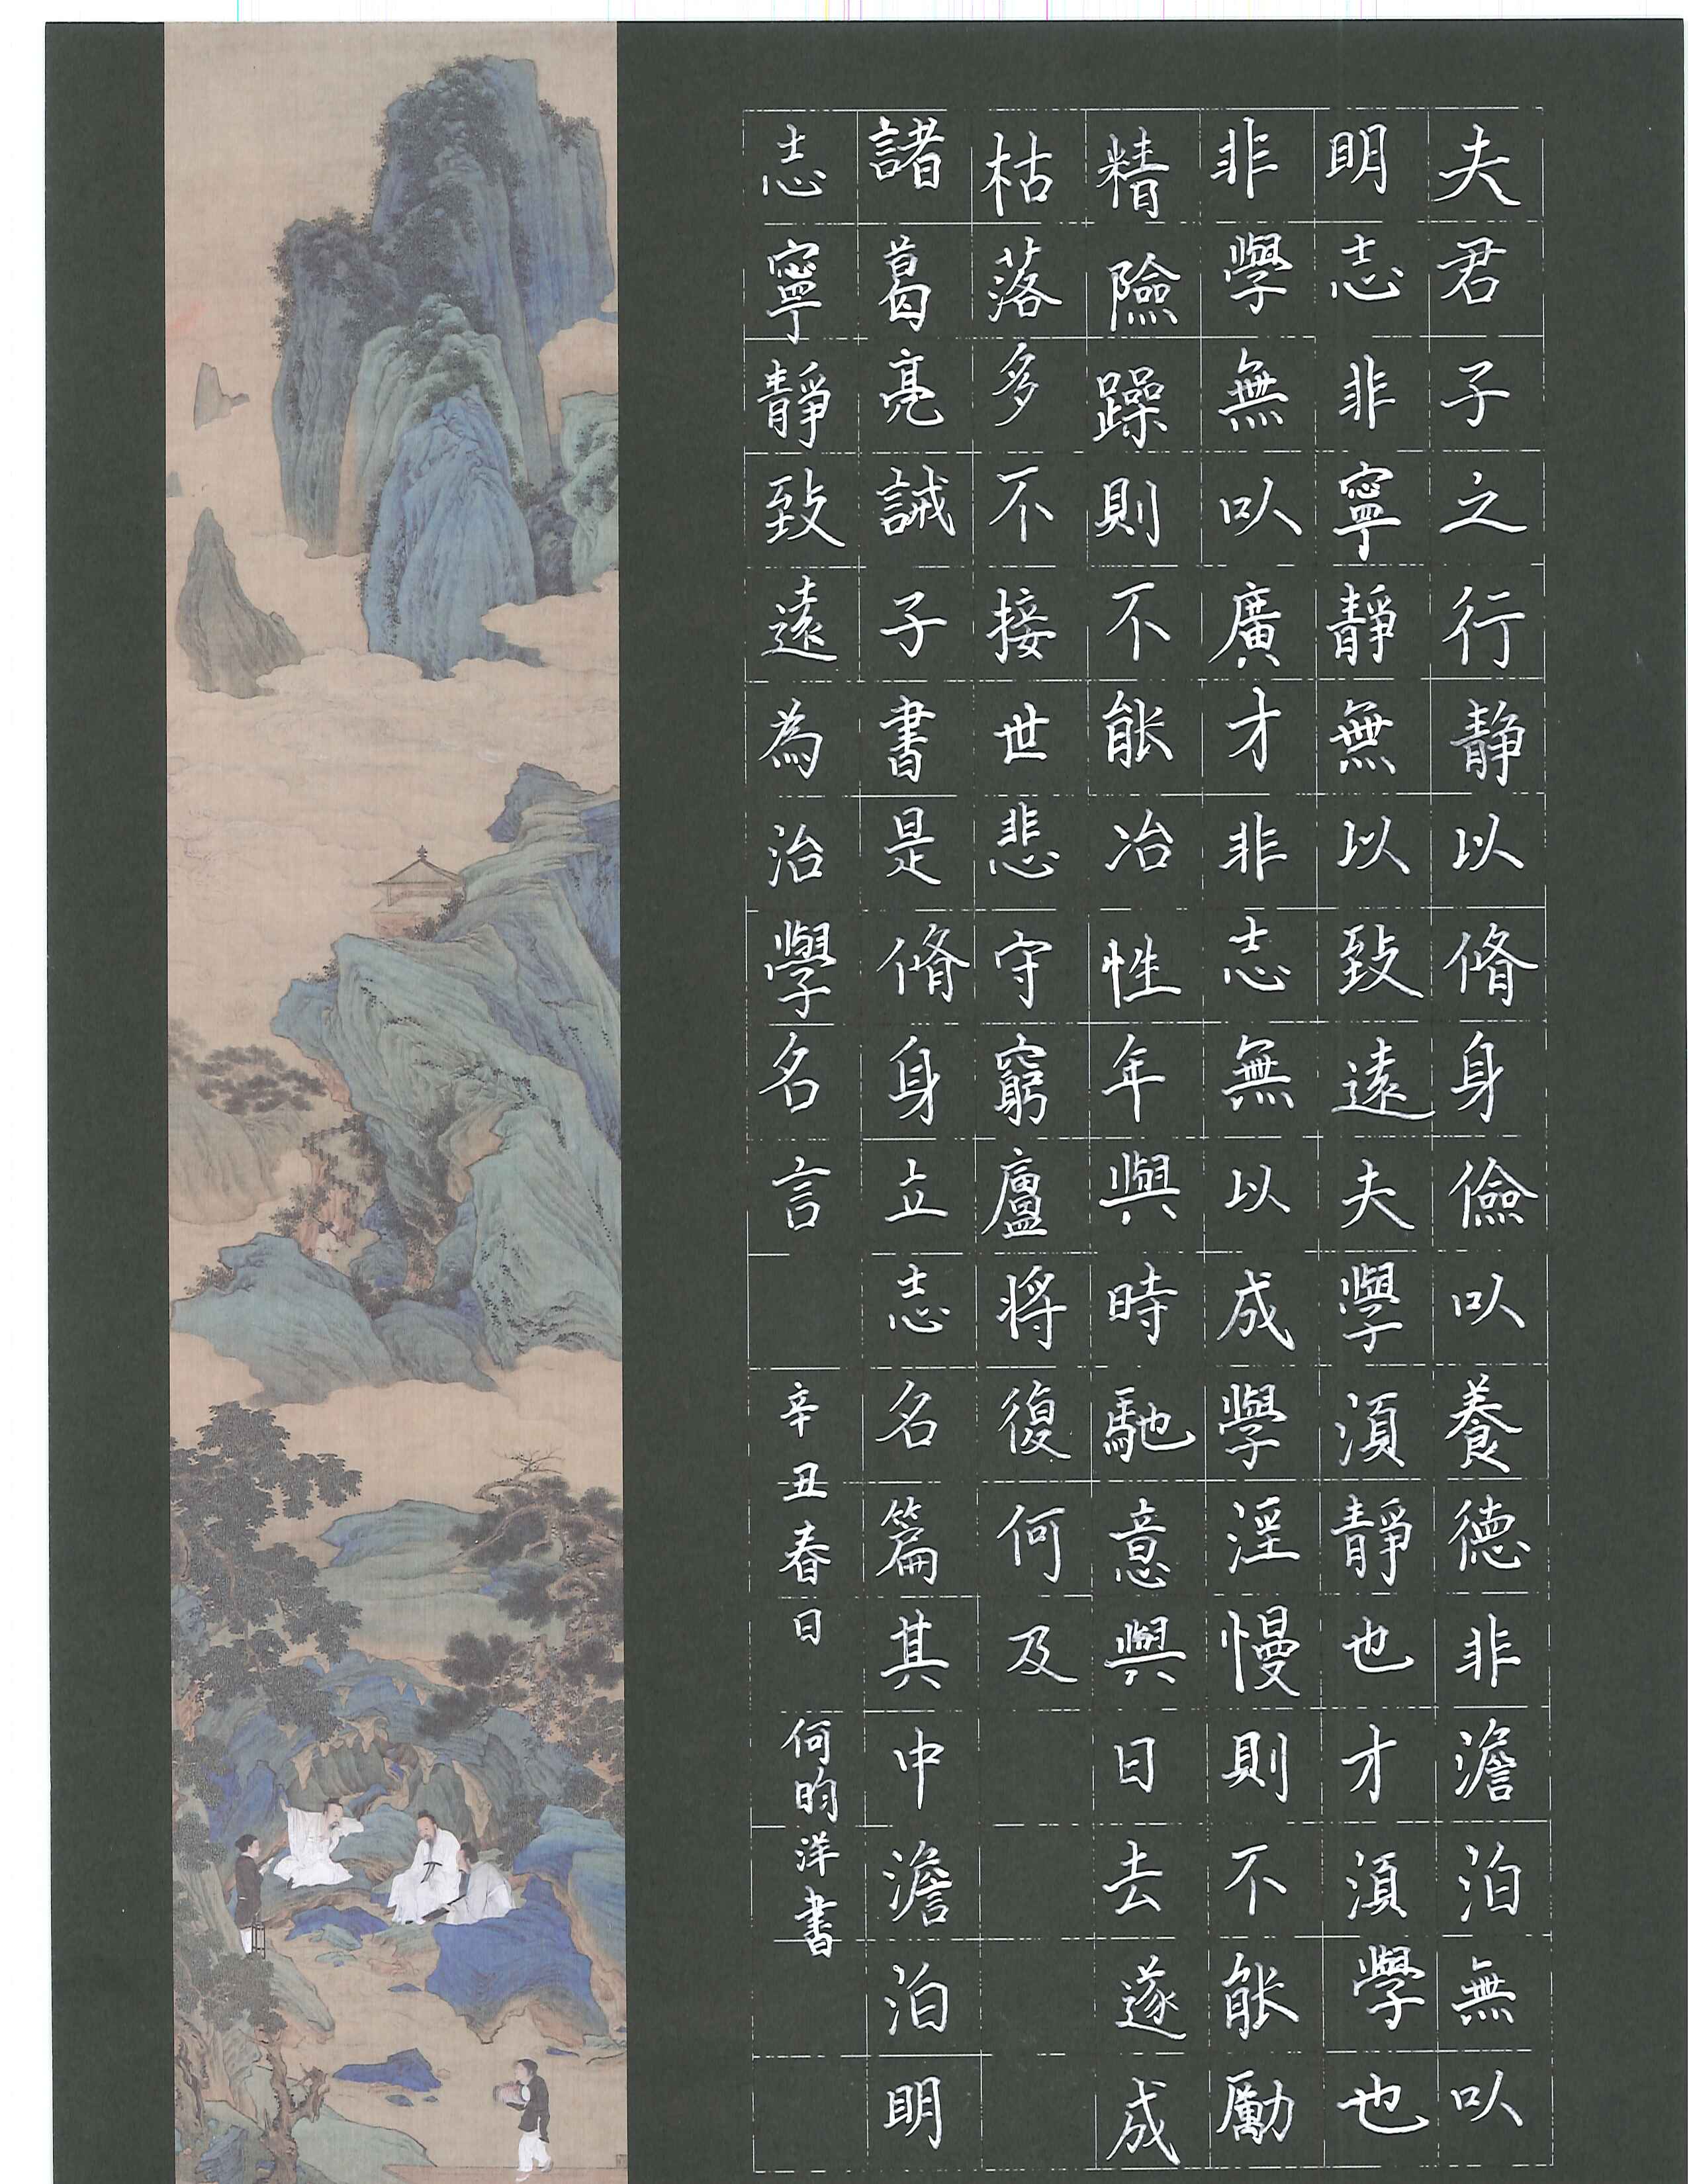 夫君子之行静以脩身儉以養德非澹泊無以
明志非寧靜無以致遠夫學須靜也才須學也
非學無以廣才非志無以成學淫慢則不能勵
精險躁則不能冶性年與時馳意與日去遂成
枯落多不接世悲守窮廬將復何及
諸葛亮誡子書是脩身立志名篇其中澹泊明
志寧靜致遠為治學名言
辛丑春日 何昀洋書